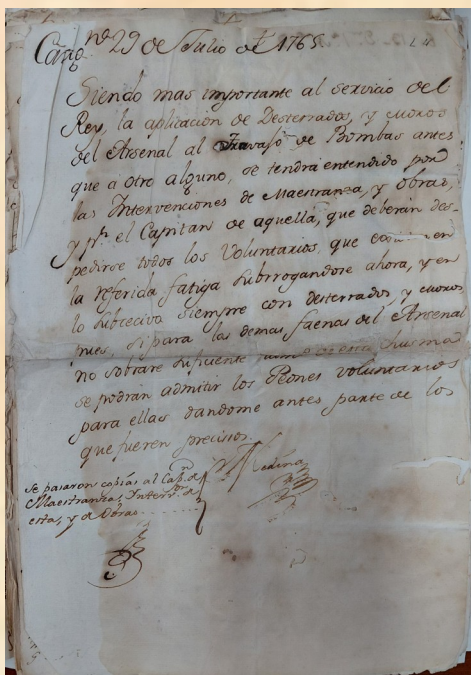 Cartag.na 29 de Julio de 1765
Siendo mas importante al servicio del
Rey, la aplicacion de Desterrados, y moros
del Arsenal al Travajo de Bombas antes
que a otro alguno, se tendrá entendido por
las Intervenciones de Maestranza, y obras,
y p.r el Capitan de aquella, que deberán des-
pedirse todos los Voluntarios, que en
la referida fatiga subrrogandose ahora, y en
lo subcecivo siempre con desterrados, y moros
pues, si para las demas faenas del Arsenal
no sobrare suficiente Chusma
se podrán admitir los Peones voluntarios
para ellas dandome antes parte de los
que fueren precisos.
se pasaron copias al Cap.n de
Maestranza, Interv.or de
esta, y de Obras